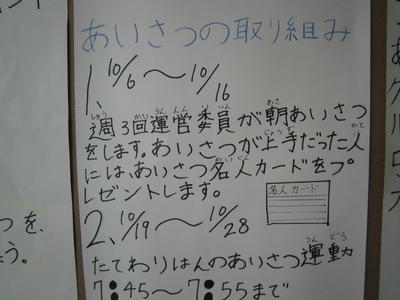 あいさつの取り組み
1、10/6～10/16
週3回運営委員が朝あいさつ
をします。あいさつが上手だった人
には、あいさつ名人カードをプ
レゼントします。
名人カード
2、10/19～10/28
たてわりはんのあいさつ運動
7:45～7:55まで